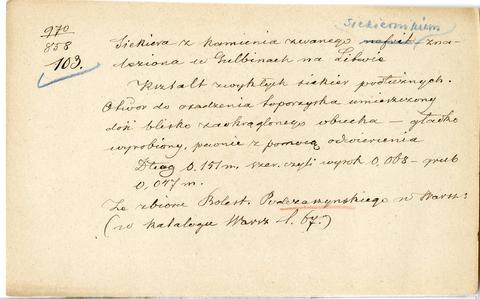 970
858
103.
Siekiera z kamienia zwanego nefrit zna-
leziona w Gelbinach na Litwie
Kształt zwykłych siekier podłużnych.
Otwór do osadzenia toporzyska umieszczony
dość blisko zaokrąglonego obucha — gładko
wyrobiony, pewnie z pomocą odwiercenia
Dług 0.151 m, szer. czyli wyrok 0,065 — grub
0,047 m.
Ze zbioru Bolest. Podczaszyńskiego w Warsz:
(w katalogu Warsz l. 67.)